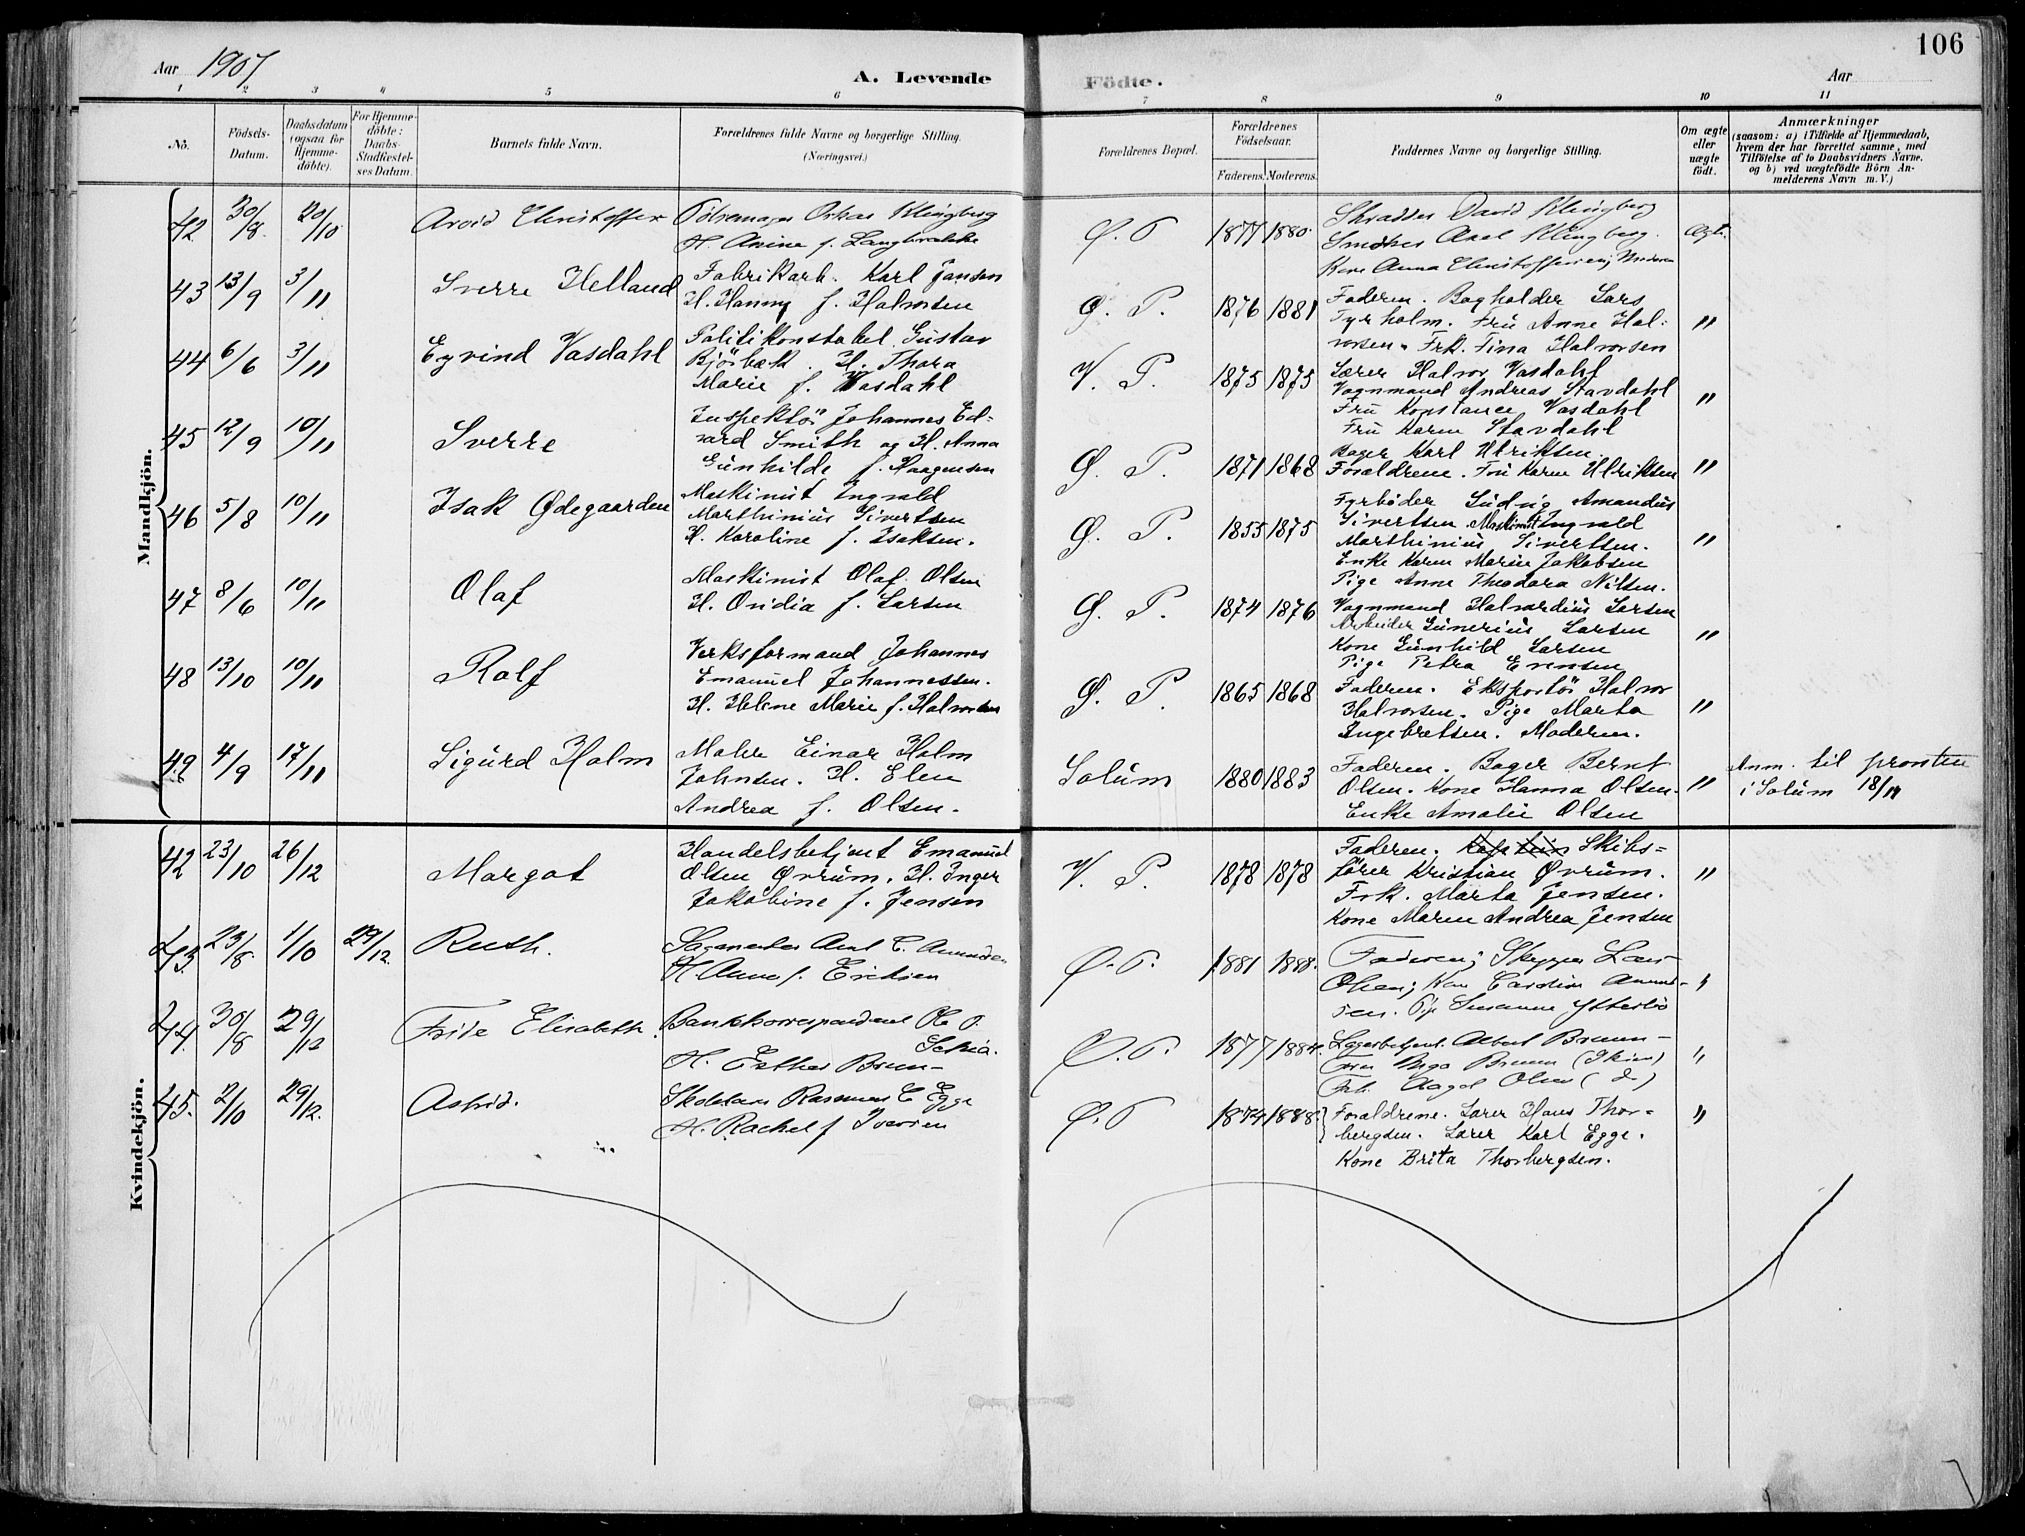 106
Aar 1907
A. Levende
Födte.
Aar
1 2 3 4 5 6
7 8 9 10 11
No.
Födsels-Datum.
Daabsdatum (ogsaa for Hjemme-döbte).
For Hjemme-döbte: Daabs-Stadfæstel-ses Datum.
Barnets fulde Navn.
Forældrenes fulde Navne og borgerlige Stilling.
(Næringsvei.)
Forældrenes Bopæl.
Forældrenes Födselsaar.
Faderens. Moderens.
Faddernes Navne og borgerlige Stilling.
Om ægte eller uægte födt.
Anmærkninger
(saasom: a) i Tilfælde af Hjemmedaab,
hvem der har forrettet samme, med
Tilföielse af to Daabsvidners Navne,
og b) ved uægtefödte Börn An-
melderens Navn m. V.)
Mandkjön.
42 30/8 20/10 Arvid Christoffer Oskar Klingberg
H. Anine f. Langbrække
Ø. P 1877 1880 David Klingberg
Axel Klingberg. Ægte.
Kone Anna
43 13/9 3/11 Sverre Helland Fabrikarb. Karl Jansen
H. Hanny f. Halvorsen
Ø. P. 1876 1881 Faderen. Bogholder Lars
Tyrholm. Fru Anne Hal-
vorsen. Frk. Tina Halvorsen "
44 6/6 3/11 Eyvind Vasdahl Politikonstabel Gustav
Bjørbæk. H. Thora
Marie f. Vasdahl
V. P. 1875 1875 Lærer Halvor Vasdahl
Vognmand Andreas Stavdahl
Fru Konstance Vasdahl
Fru Karen Stavdahl "
45 12/9 10/11 Sverre Inspektør Johannes Ed-
vard Smith og H. Anna
Gunhilde f. Haagensen
Ø. P. 1871 1868 Bager Karl Ulriksen.
Forældrene. Fru Karen Ulriksen "
46 5/8 10/11 Isak Ødegaarden Maskinist Ingvald
Marthinius Sivertsen
H. Karoline f. Isaksen.
Ø. P. 1855 1875 Fyrbøder Ludvig Amandus
Sivertsen. Maskinist Ingvald
Marthinius Sivertsen.
Enke Karen Marie Jakobsen
Pige Anne Theodora Nilsen. "
47 8/6 10/11 Olaf Maskinist Olaf Olsen
H. Ovidia f. Larsen
Ø. P. 1874 1876 Vognmand Halvardius Larsen
Arbeider Gunerius Larsen
Kone Gunhild Larsen
Pige Petra Evensen "
48 13/10 10/11 Rolf Verksformand Johannes
Emanuel Johannessen.
H. Helene Marie f. Halvorsen
Ø. P. 1865 1868 Faderen. Eksportør Halvor
Halvorsen. Pige Marta
Ingebretsen. Moderen. "
49 4/9 17/11 Sigurd Holm Maler Einar Holm
Johnsen. H. Elen
Andrea f. Olsen.
Solum 1880 1883 Faderen. Bager Bernt
Olsen. Kone Hanna Olsen.
Enke Amalie Olsen " Anm. til provsten
i Solum 18/11
Kvindekjön.
42 23/10 26/12 Margot Handelsbetjent Emanuel
Olsen Ørrum. H. Inger
Jakobine f. Jensen
V. P. 1878 1878 Faderen. Skibs-
fører Kristian Ørrum.
Frk. Marta Jensen.
Kone Maren Andrea Jensen "
43. 23/8 1/10 29/12. Ruth. C.
H. Anna f. Eriksen
Ø. P. 1881 1888. Faderen; Lars
Olsen; "
44. 30/8 29/12 Elisabeth. Ole
H. Esther Bruun
Ø. P. 1877 1884. Lagerbetjent Albert Bruun
Bruun (Skien)
Frk. Aagot Olsen (do) "
45. 2/10 29/12. Astrid. Rasmus E Egge
H. Rachel f Iversen
Ø. P 1874 1888. Forældrene. Lærer Hans Thor-
bergsen. Lærer Karl Egge.
Kone Brita Thorbergsen. "